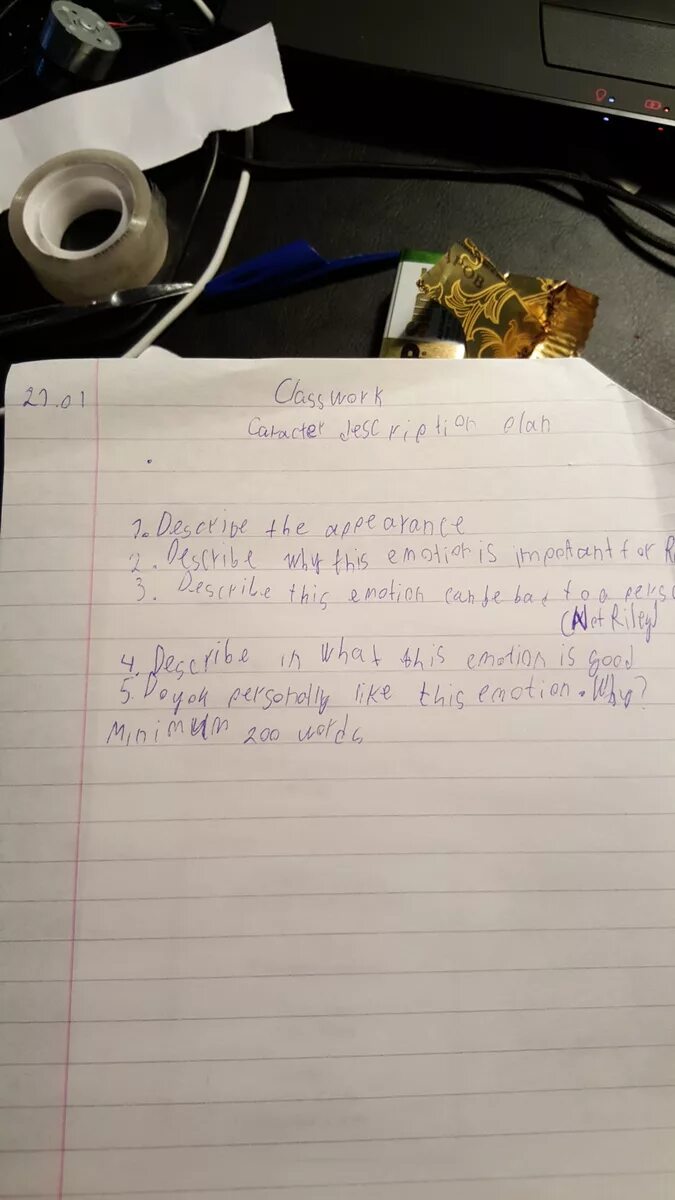 27.01
Classwork
Caracter description plan
1. Describe the appearance
2. Describe why this emotion is impotant for
3. Describe this emotion can be bad to a
(Not Riley)
4. Describe in what this emotion is good
5. Do you personally like this emotion. Why?
Minimum 200 words